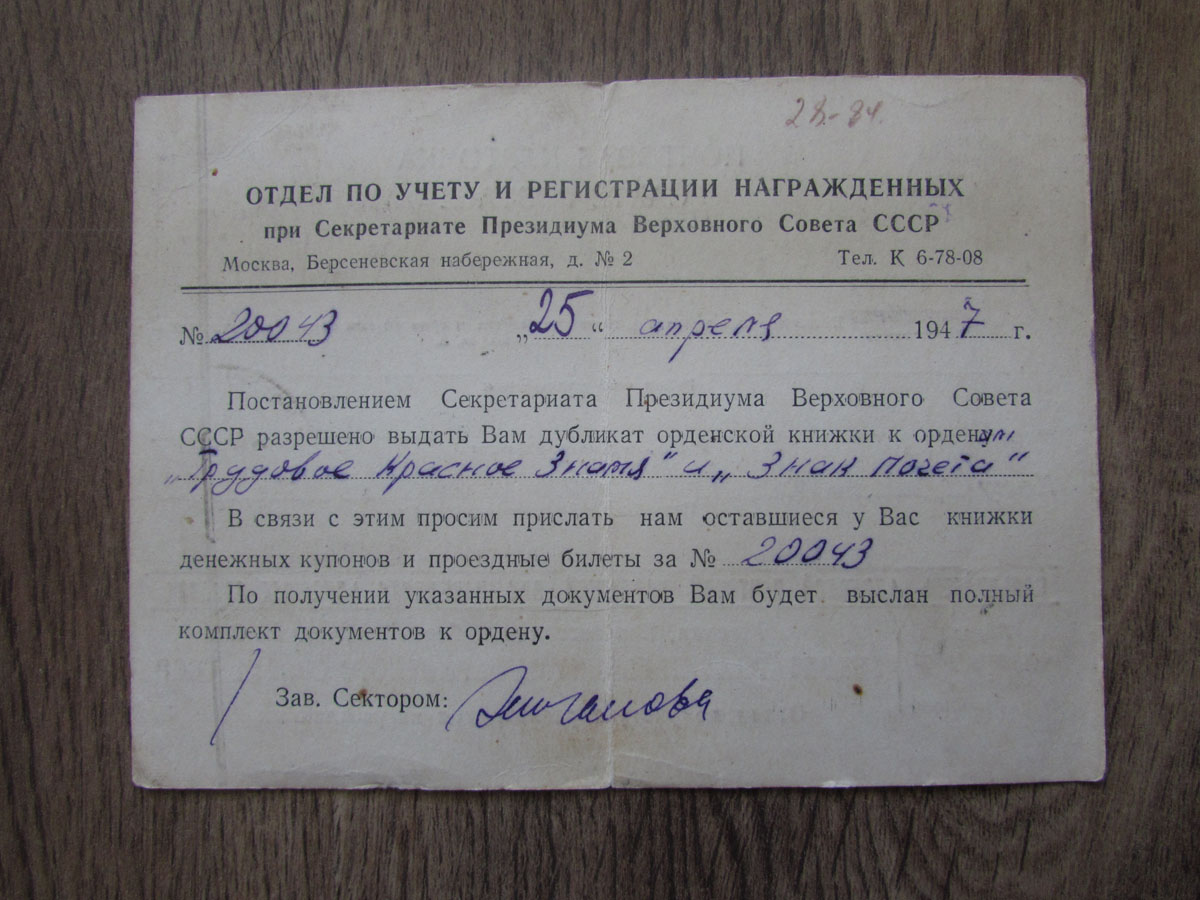 28.-84.
ОТДЕЛ ПО УЧЕТУ И РЕГИСТРАЦИИ НАГРАЖДЕННЫХ
при Секретариате Президиума Верховного Совета СССР
Москва, Берсеневская набережная, д. № 2 Тел. К 6-78-08
№ 20043 „25“ апреля 1947 г.
Постановлением Секретариата Президиума Верховного Совета
СССР разрешено выдать Вам дубликат орденской книжки к орденам
„Трудовое Красное Знамя" и „Знак Почета"
В связи с этим просим прислать нам оставшиеся у Вас книжки
денежных купонов и проездные билеты за № 20043
По получении указанных документов Вам будет выслан полный
комплект документов к ордену.
Зав. Сектором: